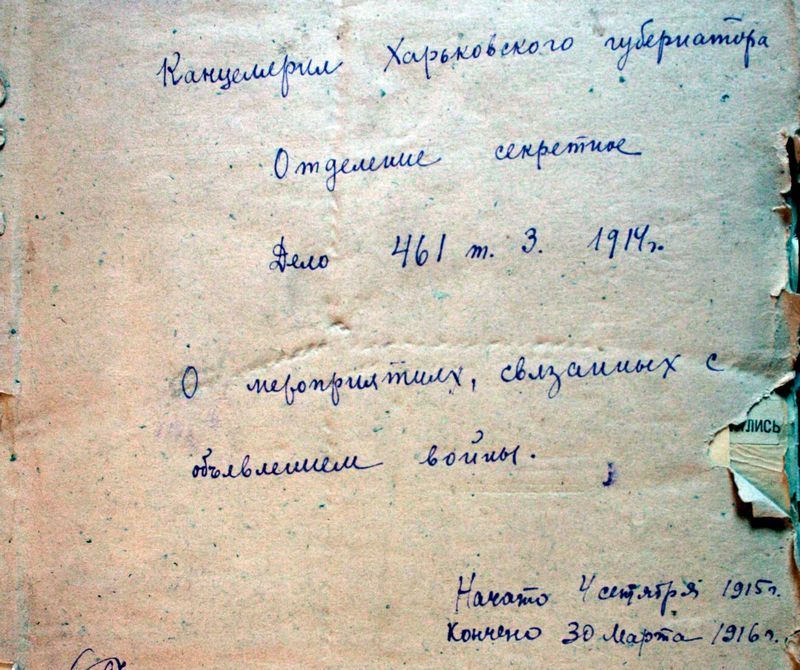 Канцелярия Харьковского губернатора
Отделение секретное
Дело 461 т. 3. 1914г.
О мероприятиях, связанных с
объявлением войны.
лись
Начато 4 сентября 1915г.
Кончено 30 Марта 1916г.